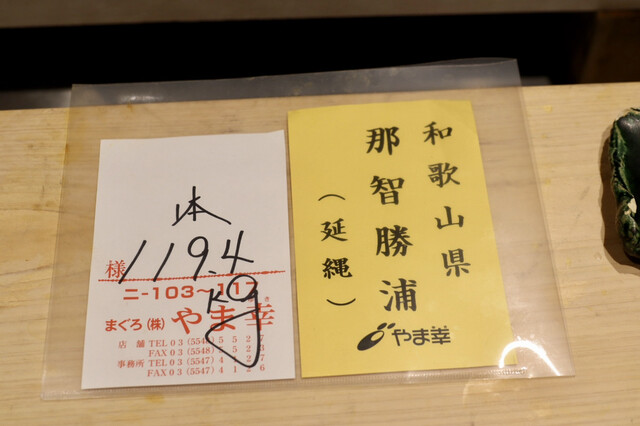 本
119.4
kg
様
ニ-103~117
まぐろ(株) やま幸
店舗 TEL 03(5548)
FAX 03(5548)
事務所 TEL 03(5547)
FAX 03(5547)
和歌山県
那智勝浦
(延縄)
やま幸